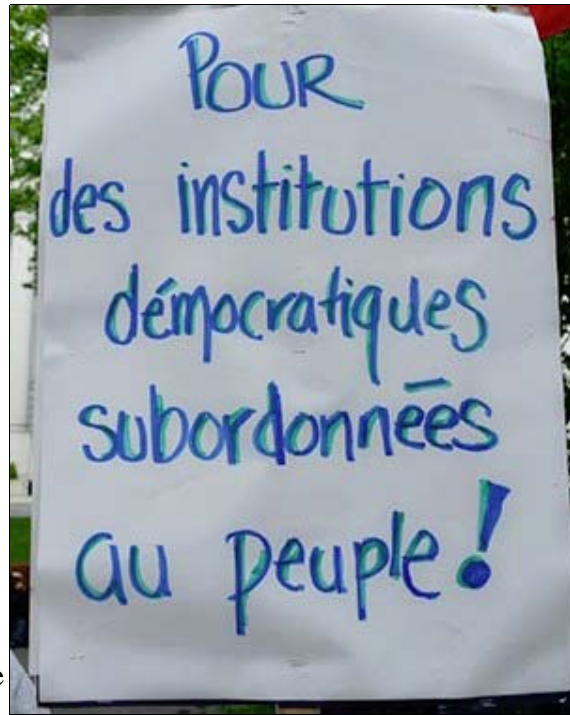 POUR
des institutions
démocratiques
subordonnées
au peuple!